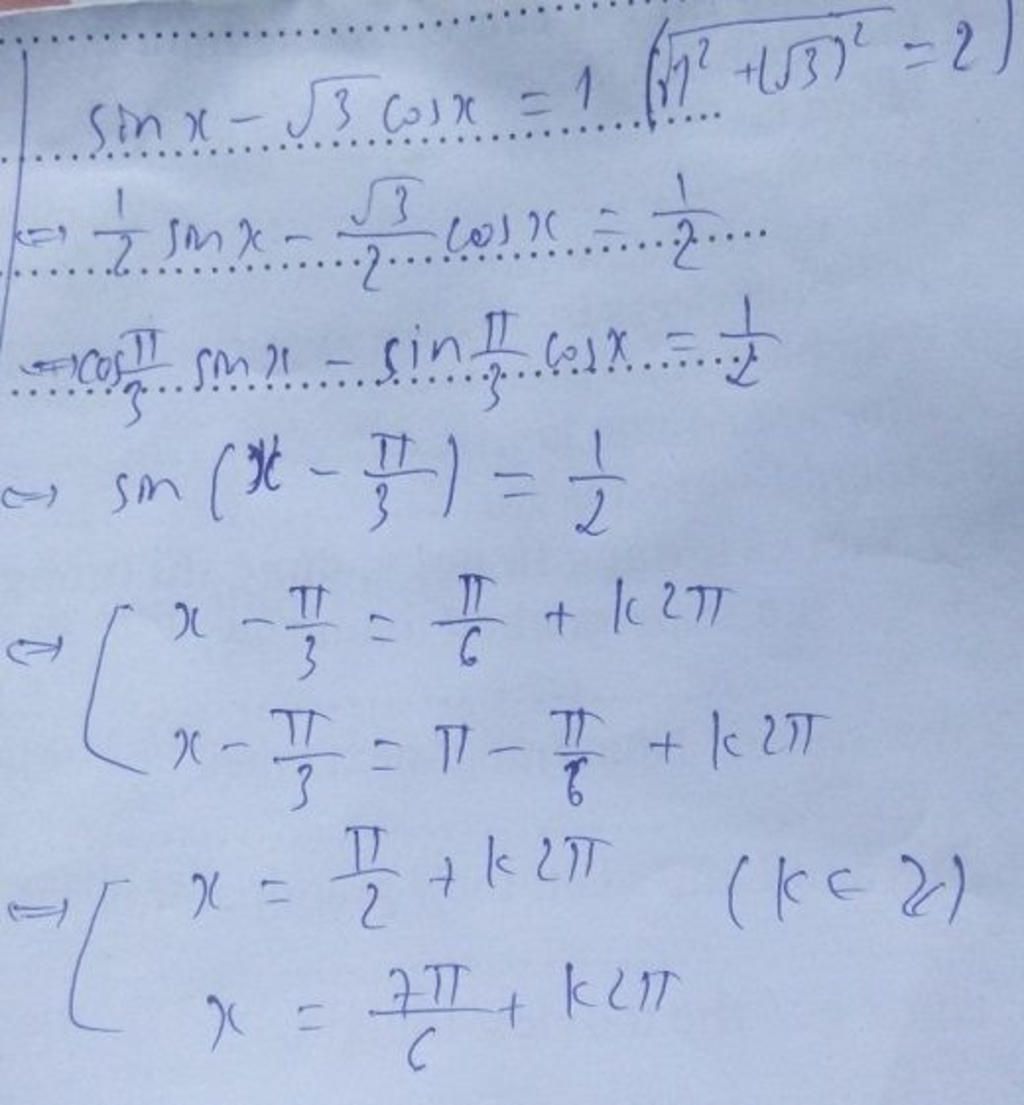 sin x - √3 cos x = 1 (√(1² + (√3)²) = 2)
⇔ 1/2 sin x - √3/2 cos x = 1/2
⇔ cos π/3 sin x - sin π/3 cos x = 1/2
⇔ sin (x - π/3) = 1/2
⇔ [ x - π/3 = π/6 + k2π
x - π/3 = π - π/6 + k2π
⇔ [ x = π/2 + k2π (k ∈ Z)
x = 7π/6 + k2π